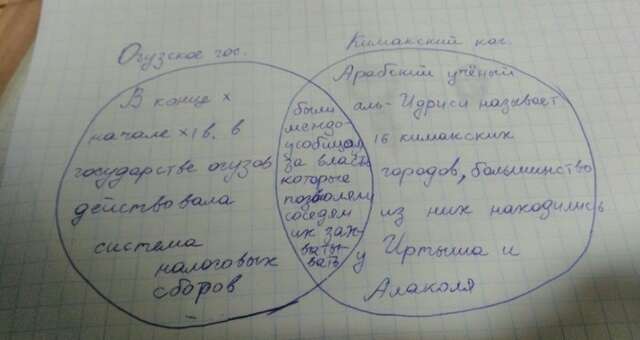 Огузское гос.
В конце X
начале XI в. в
государстве огузов
действовала
система
налоговых
сборов
были
междо-
усобицы
за власть
которые
позволяли
соседям
их зах-
ваты-
вать
Кимакский каг.
Арабский учёный
аль-Идриси называет
16 кимакских
городов, большинство
из них находились
у Иртыша и
Алаколя